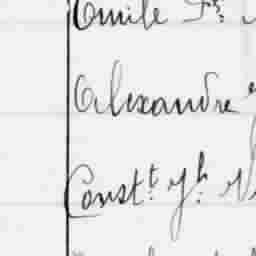 Emile Fs:
Alexandre
Const.t: Jh: